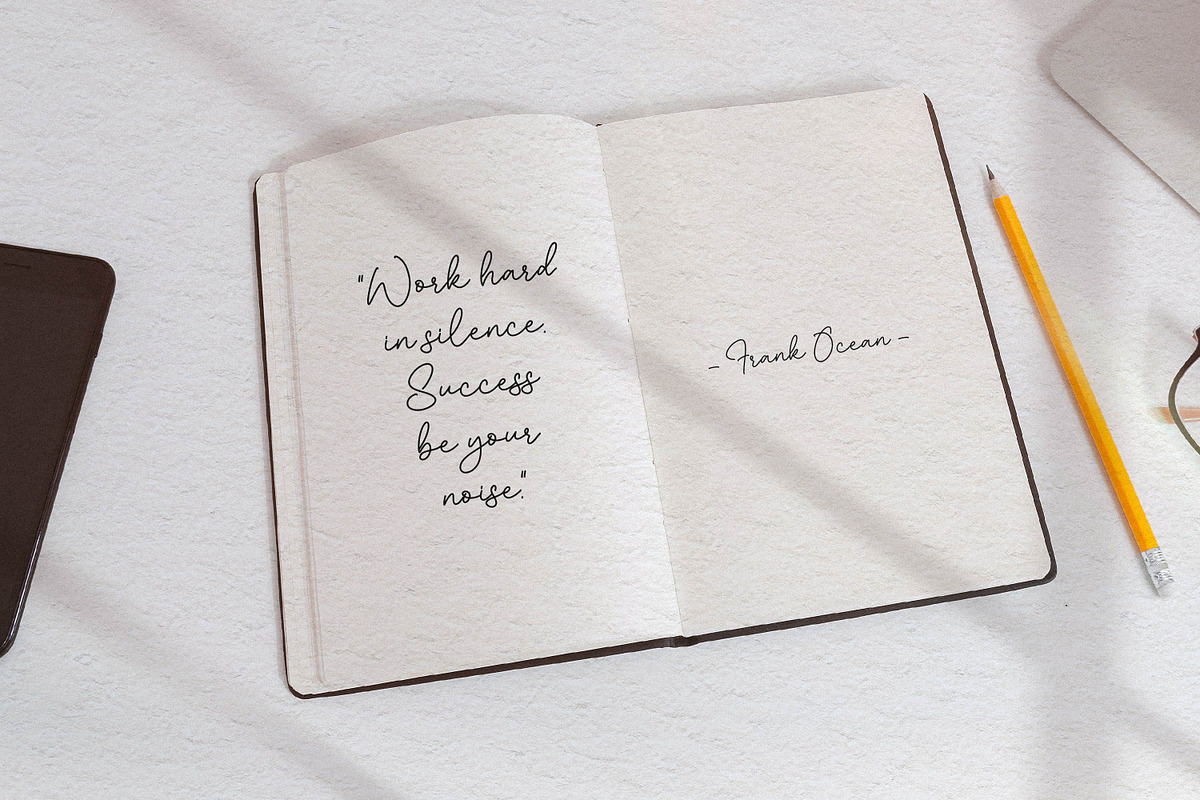 "Work hard
in silence.
Success
be your
noise."
– Frank Ocean –